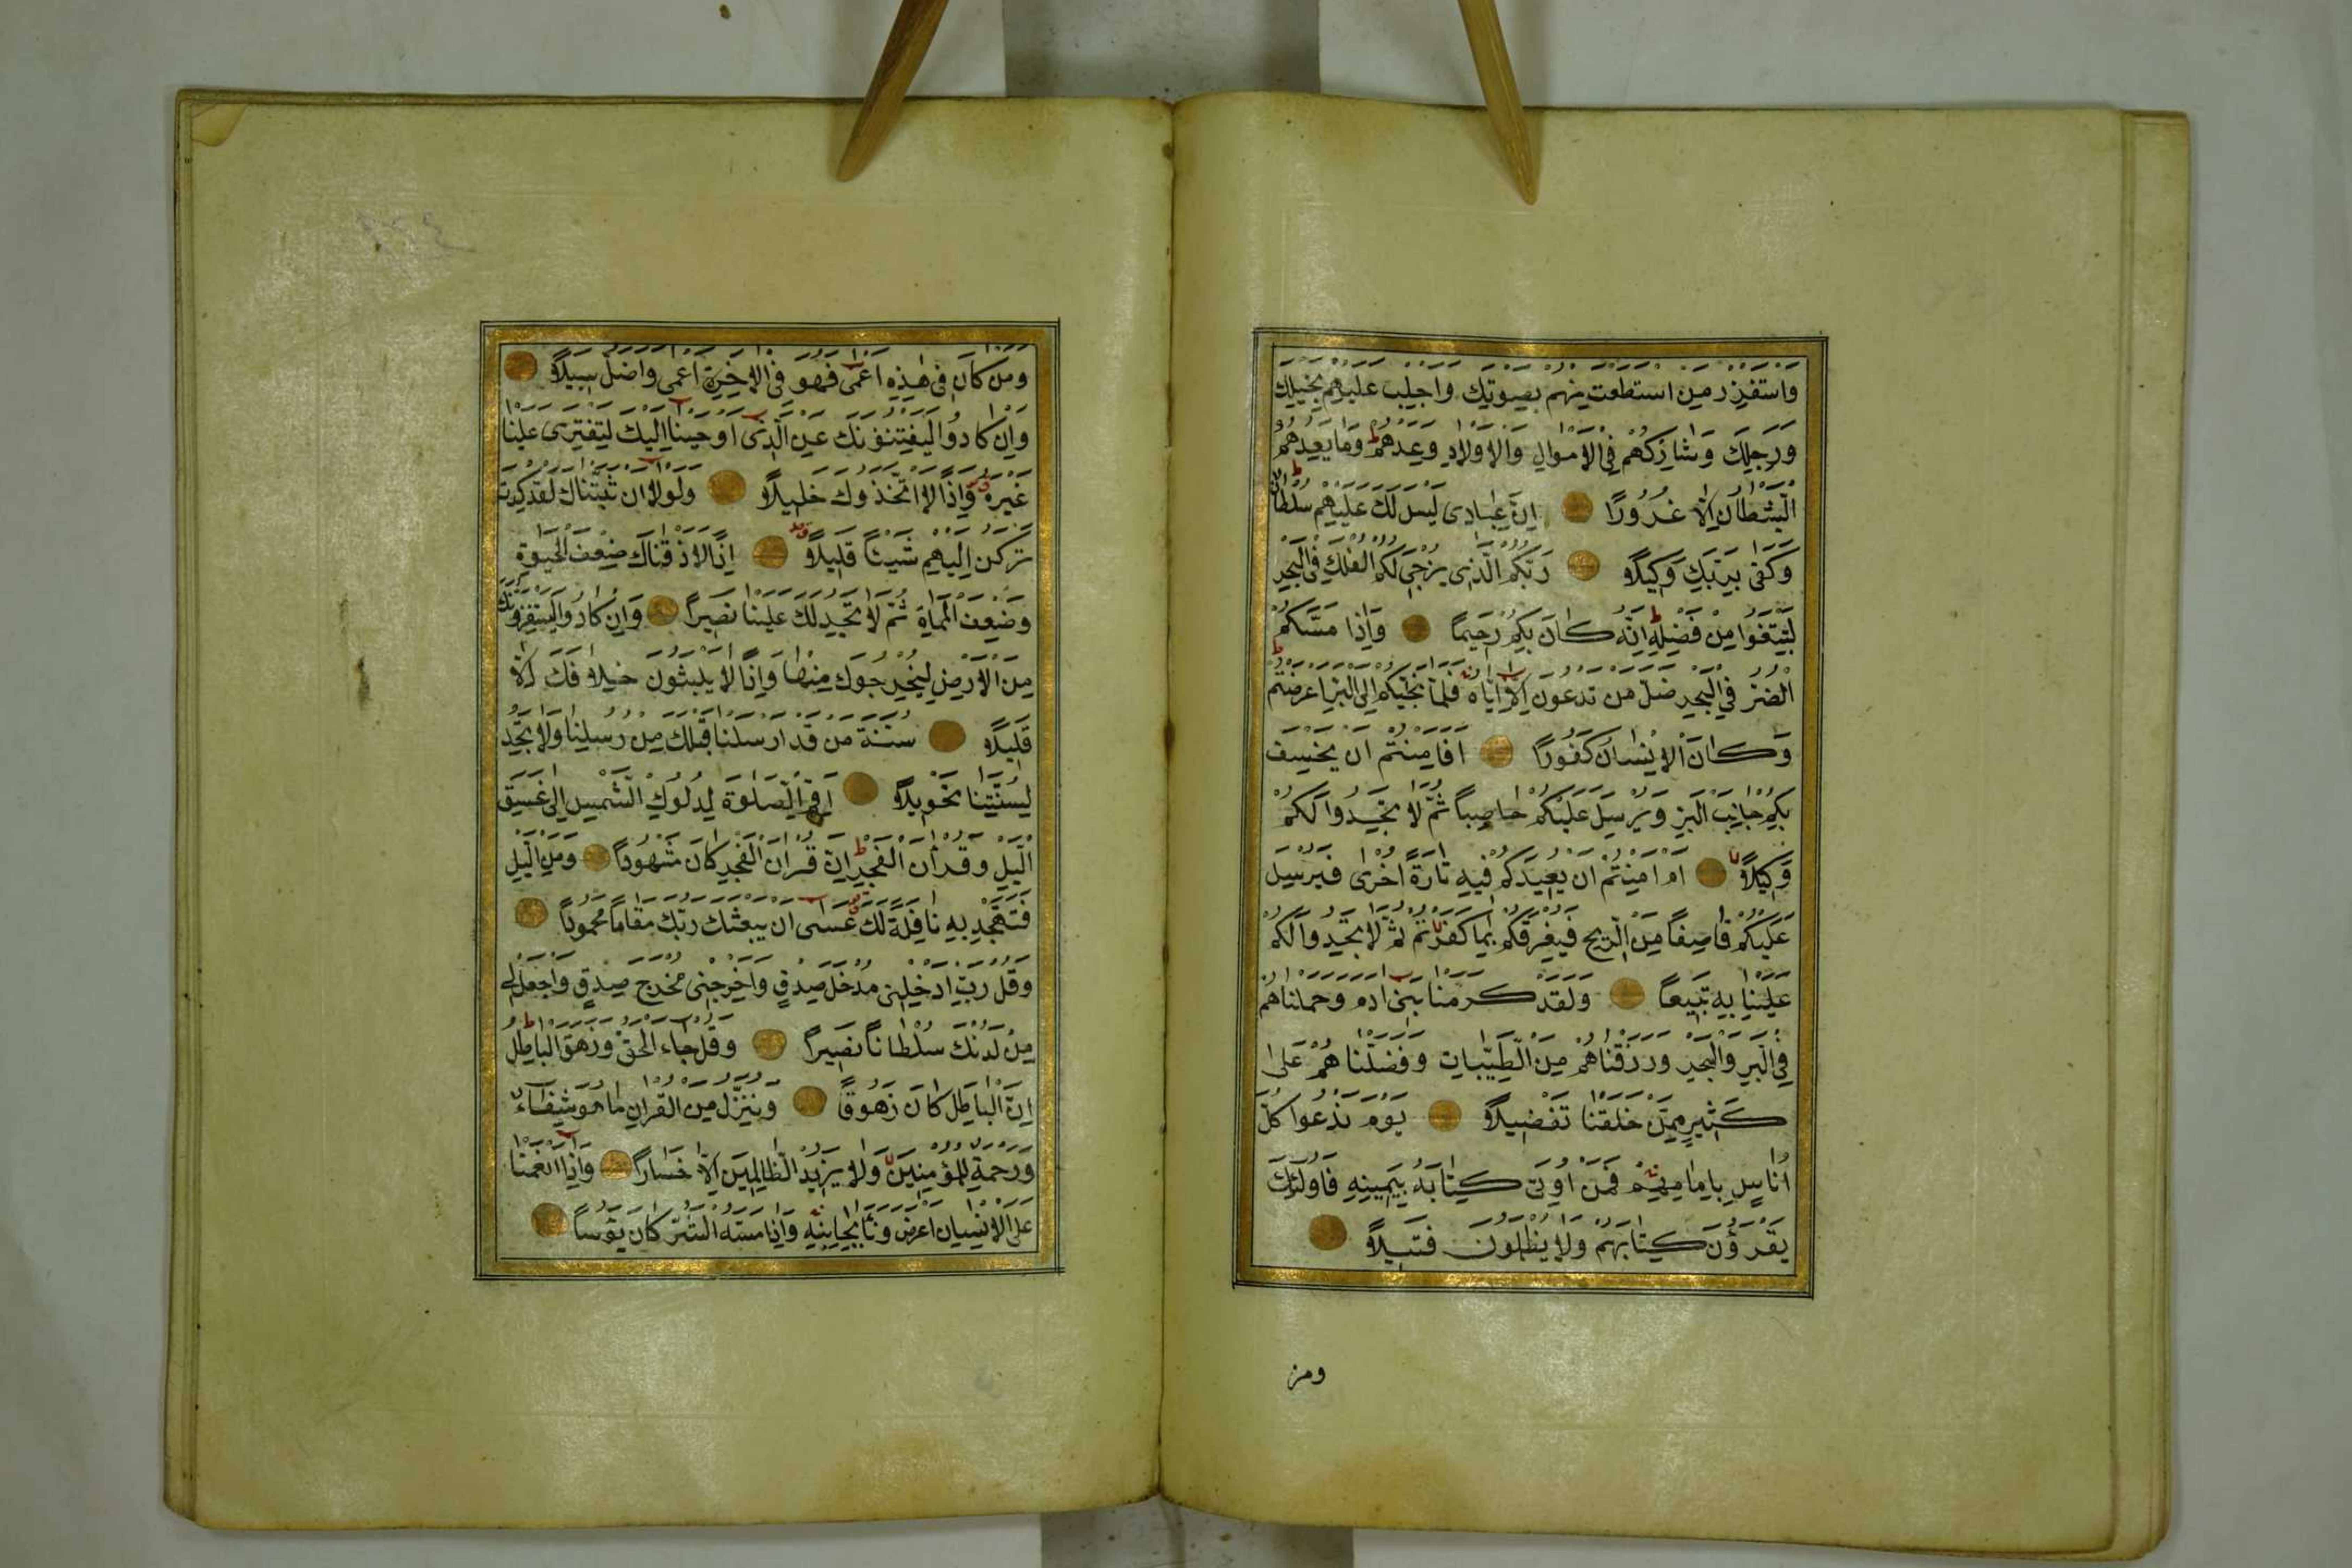 وَاسْتَفْزِزْ مَنِ اسْتَطَعْتَ مِنْهُمْ بِصَوْتِكَ وَاَجْلِبْ عَلَيْهِمْ بِخَيْلِكَ
وَرَجِلِكَ وَشَارِكْهُمْ فِي الْاَمْوَالِ وَالْاَوْلَادِ وَعِدْهُمْ وَمَا يَعِدُهُمُ
الشَّيْطَانُ اِلَّا غُرُورًا اِنَّ عِبَادِى لَيْسَ لَكَ عَلَيْهِمْ سُلْطَانٌ
وَكَفٰى بِرَبِّكَ وَكِيلًا رَبُّكُمُ الَّذِى يُزْجِى لَكُمُ الْفُلْكَ فِى الْبَحْرِ
لِتَبْتَغُوا مِنْ فَضْلِهِ اِنَّهُ كَانَ بِكُمْ رَحِيمًا وَاِذَا مَسَّكُمُ
الضُّرُّ فِي الْبَحْرِ ضَلَّ مَنْ تَدْعُونَ اِلَّا اِيَّاهُ فَلَمَّا نَجّٰيكُمْ اِلَى الْبَرِّ اَعْرَضْتُمْ
وَكَانَ الْاِنْسَانُ كَفُورًا اَفَاَمِنْتُمْ اَنْ يَخْسِفَ
بِكُمْ جَانِبَ الْبَرِّ وَيُرْسِلَ عَلَيْكُمْ حَاصِبًا ثُمَّ لَا تَجِدُوا لَكُمْ
وَكِيلًا اَمْ اَمِنْتُمْ اَنْ يُعِيدَكُمْ فِيهِ تَارَةً اُخْرٰى فَيُرْسِلَ
عَلَيْكُمْ قَاصِفًا مِنَ الرِّيحِ فَيُغْرِقَكُمْ بِمَا كَفَرْتُمْ ثُمَّ لَا تَجِدُوا لَكُمْ
عَلَيْنَا بِهِ تَبِيعًا وَلَقَدْ كَرَّمْنَا بَنِى اٰدَمَ وَحَمَلْنَاهُمْ
فِي الْبَرِّ وَالْبَحْرِ وَرَزَقْنَاهُمْ مِنَ الطَّيِّبَاتِ وَفَضَّلْنَاهُمْ عَلٰى
كَثِيرٍ مِمَّنْ خَلَقْنَا تَفْضِيلًا يَوْمَ نَدْعُوا كُلَّ
اُنَاسٍ بِاِمَامِهِمْ فَمَنْ اُوتِىَ كِتَابَهُ بِيَمِينِهِ فَاُولٰئِكَ
يَقْرَؤُنَ كِتَابَهُمْ وَلَا يُظْلَمُونَ فَتِيلًا
ومن
وَمَنْ كَانَ فِى هٰذِهِ اَعْمٰى فَهُوَ فِى الْاٰخِرَةِ اَعْمٰى وَاَضَلُّ سَبِيلًا
وَاِنْ كَادُوا لَيَفْتِنُونَكَ عَنِ الَّذِى اَوْحَيْنَا اِلَيْكَ لِتَفْتَرِىَ عَلَيْنَا
غَيْرَهُ وَاِذًا لَاتَّخَذُوكَ خَلِيلًا وَلَوْلَا اَنْ ثَبَّتْنَاكَ لَقَدْ كِدْتَ
تَرْكَنُ اِلَيْهِمْ شَيْئًا قَلِيلًا اِذًا لَاَذَقْنَاكَ ضِعْفَ الْحَيٰوةِ
وَضِعْفَ الْمَمَاةِ ثُمَّ لَا تَجِدُ لَكَ عَلَيْنَا نَصِيرًا وَاِنْ كَادُوا لَيَسْتَفِزُّونَكَ
مِنَ الْاَرْضِ لِيُخْرِجُوكَ مِنْهَا وَاِذًا لَا يَلْبَثُونَ خِلَافَكَ اِلَّا
قَلِيلًا سُنَّةَ مَنْ قَدْ اَرْسَلْنَا قَبْلَكَ مِنْ رُسُلِنَا وَلَا تَجِدُ
لِسُنَّتِنَا تَحْوِيلًا اَقِمِ الصَّلٰوةَ لِدُلُوكِ الشَّمْسِ اِلٰى غَسَقِ
الَّيْلِ وَقُرْاٰنَ الْفَجْرِ اِنَّ قُرْاٰنَ الْفَجْرِ كَانَ مَشْهُودًا وَمِنَ الَّيْلِ
فَتَهَجَّدْ بِهِ نَافِلَةً لَكَ عَسٰى اَنْ يَبْعَثَكَ رَبُّكَ مَقَامًا مَحْمُودًا
وَقُلْ رَبِّ اَدْخِلْنِى مُدْخَلَ صِدْقٍ وَاَخْرِجْنِى مُخْرَجَ صِدْقٍ وَاجْعَلْ لِى
مِنْ لَدُنْكَ سُلْطَانًا نَصِيرًا وَقُلْ جَاءَ الْحَقُّ وَزَهَقَ الْبَاطِلُ
اِنَّ الْبَاطِلَ كَانَ زَهُوقًا وَنُنَزِّلُ مِنَ الْقُرْاٰنِ مَا هُوَ شِفَاءٌ
وَرَحْمَةٌ لِلْمُؤْمِنِينَ وَلَا يَزِيدُ الظَّالِمِينَ اِلَّا خَسَارًا وَاِذَا اَنْعَمْنَا
عَلَى الْاِنْسَانِ اَعْرَضَ وَنَاٰ بِجَانِبِهِ وَاِذَا مَسَّهُ الشَّرُّ كَانَ يَؤُسًا